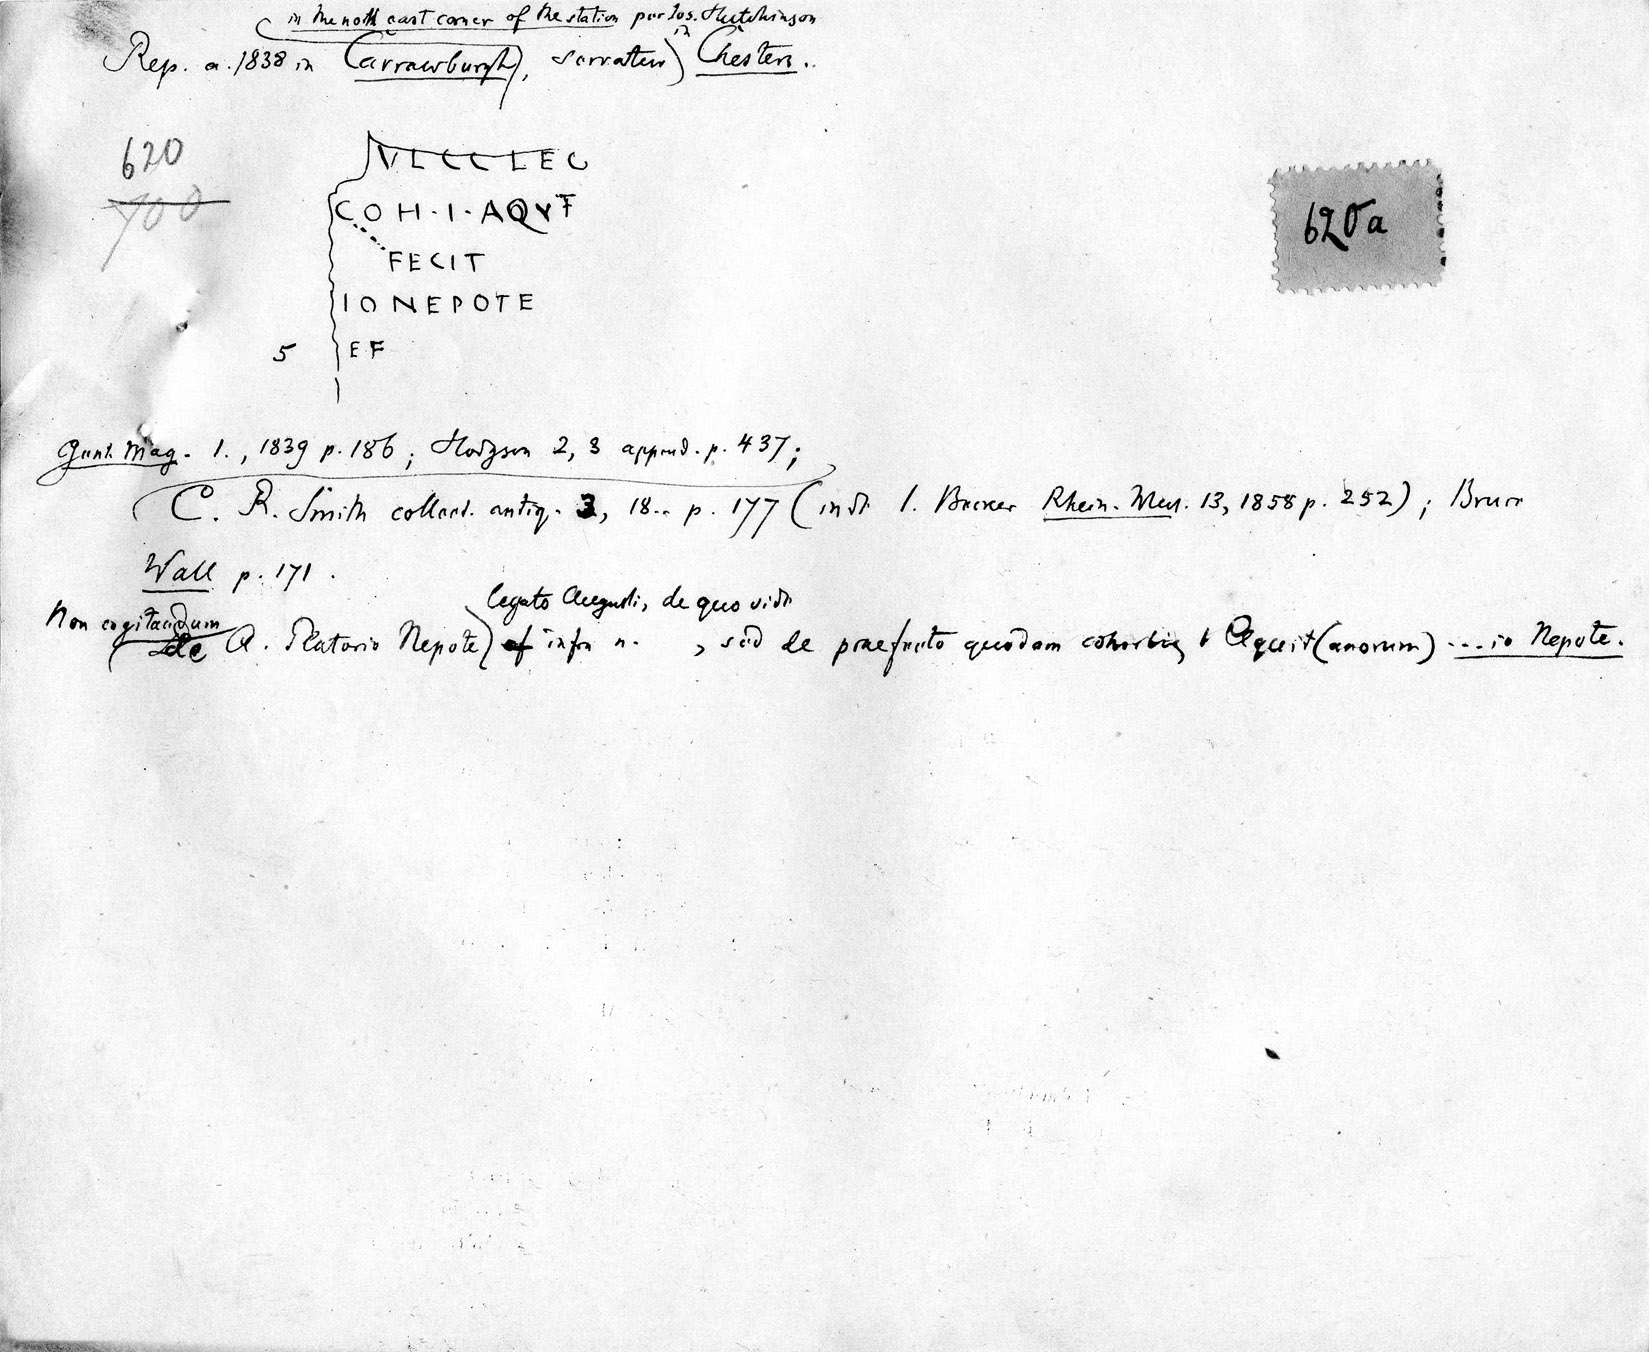 in the north east corner of the station per Jos. Hutchinson
Rep. a. 1838 in Carrawburgh, servatur in Chesters.
620
700
VLCCLEC
COH·I·AQVT
FECIT
IO NEPOTE
5 EF
620a
Gent. Mag. 1., 1839 p. 186; Hodgson 2, 3 append. p. 437;
C. R. Smith collect. antiq. 3, 18.. p. 177 (inde I. Becker Rhein. Mus. 13, 1858 p. 252); Bruce
Wall p. 171.
legato Augusti, de quo vide
Non cogitandum de A. Platorio Nepote infra n. , sed de praefecto quodam cohortis I Aquit(anorum) ...io Nepote.